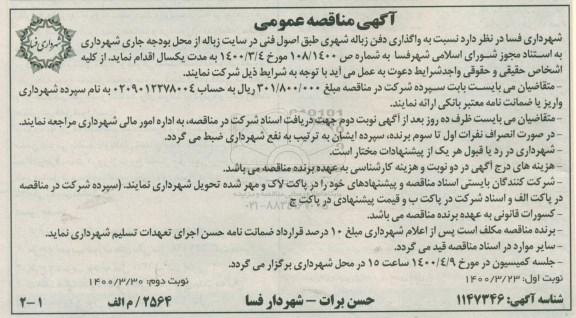 آگهی مناقصه عمومی
شهرداری فسا
شهرداری فسا در نظر دارد نسبت به واگذاری دفن زباله شهری طبق اصول فنی در سایت زباله از محل بودجه جاری شهرداری
به استناد مجوز شورای اسلامی شهر فسا به شماره ص ۱۰۸/۱۴۰۰ مورخ ۱۴۰۰/۳/۴ به مدت یکسال اقدام نماید. از کلیه
اشخاص حقیقی و حقوقی واجدشرایط دعوت به عمل می آید با توجه به شرایط ذیل شرکت نمایند.
- متقاضیان می بایست بابت سپرده شرکت در مناقصه مبلغ ۳۰۱/۸۰۰/۰۰۰ ریال به حساب ۰۲۰۹۰۱۲۲۷۸۰۰۴ به نام سپرده شهرداری
واریز یا ضمانت نامه معتبر بانکی ارائه نمایند.
- متقاضیان می بایست ظرف ده روز بعد از آگهی نوبت دوم جهت دریافت اسناد شرکت در مناقصه، به اداره امور مالی شهرداری مراجعه نمایند.
- در صورت انصراف نفرات اول تا سوم برنده، سپرده ایشان به ترتیب به نفع شهرداری ضبط می گردد.
- شهرداری در رد یا قبول هر یک از پیشنهادات مختار است.
- هزینه های درج آگهی در دو نوبت و هزینه کارشناسی به عهده برنده مناقصه می باشد.
- شرکت کنندگان بایستی اسناد مناقصه و پیشنهادهای خود را در پاکت لاک و مهر شده تحویل شهرداری نمایند. (سپرده شرکت در مناقصه
در پاکت الف و اسناد شرکت در پاکت ب و قیمت پیشنهادی در پاکت ج
- کسورات قانونی به عهده برنده مناقصه می باشد.
- برنده مناقصه مکلف است پس از اعلام شهرداری مبلغ ۱۰ درصد قرارداد ضمانت نامه حسن اجرای تعهدات تسلیم شهرداری نماید.
- سایر موارد در اسناد مناقصه قید می گردد.
- جلسه کمیسیون در مورخ ۱۴۰۰/۴/۹ ساعت ۱۵ در محل شهرداری برگزار می گردد.
نوبت اول: ۱۴۰۰/۳/۲۳ نوبت دوم: ۱۴۰۰/۳/۳۰
شناسه آگهی: ۱۱۴۷۳۴۶ حسن برات - شهردار فسا ۲۵۶۴/م الف ۲-۱